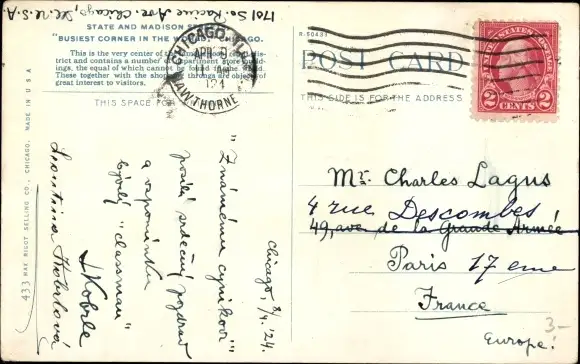 1701 So. Racine Ave. Chicago, Ill. U.S.A.
STATE AND MADISON
"BUSIEST CORNER IN THE WORLD," CHICAGO.
This is the very center of the
trict and contains a number of department store build-
ings, the equal of which cannot be found
These together with the shopping throngs are objects of
great interest to visitors.
THIS SPACE FOR
CHICAGO, ILL.
APR 9
1924
HAWTHORNE
R-50433
POST CARD
THIS SIDE IS FOR THE ADDRESS
UNITED STATES POSTAGE
2 CENTS 2
433 MAX RIGOT SELLING CO., CHICAGO. MADE IN U.S.A.
Chicago, 8/4. '24.
"Známému cynikovi"
posílá srdečný pozdrav
a vzpomínku
bývalý "classman"
JKobrle
Mr. Charles Lagus
4 rue Descombes
49, ave de la Grande Armée
Paris 17 eme
France
Europe!
3-